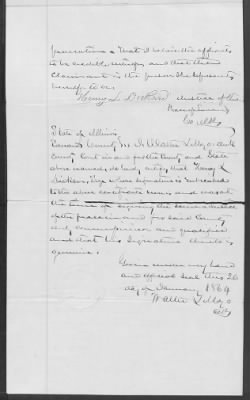 prosecution & that I believe the affiants
to be credible witnesses and that the
Claimant is the person she represents
herself to be
Henry L. Justice of the
County Ills
State of Illinois
County ss I Walter L Mayo clerk
County Court in and for the County and State
above named, do hereby certify, that Henry L
Esq whose signature is
to the above certificate was, and was at
the time of signing the same a Justice
of the peace in and for said County
duly commissioned and qualified
and that his Signature thereto is
genuine.
Given under my hand
and official seal this 26
day of January 1864
Walter L Mayo